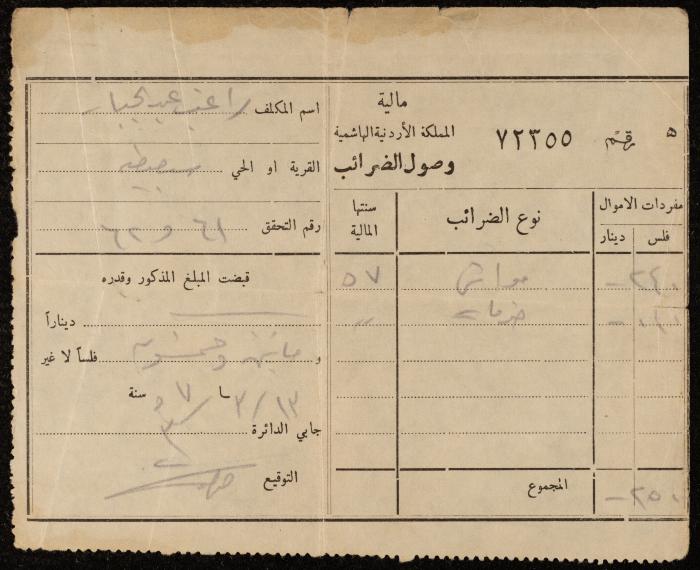 ٥ رقم ٧٢٣٥٥
مالية
المملكة الأردنية الهاشمية
وصول الضرائب
مفردات الاموال
فلس دينار
نوع الضرائب
سنتها المالية
٢٤٠ – مواشي ٥٧
٠١٠ – خدمات 〃
٢٥٠ – المجموع
اسم المكلف راغب عبد الجبار
القرية او الحي
رقم التحقق ٦١ و ٦٢
قبضت المبلغ المذكور وقدره
ديناراً
و مايتين وخمسون فلساً لا غير
١٣/٣ سنة
جابي الدائرة
التوقيع